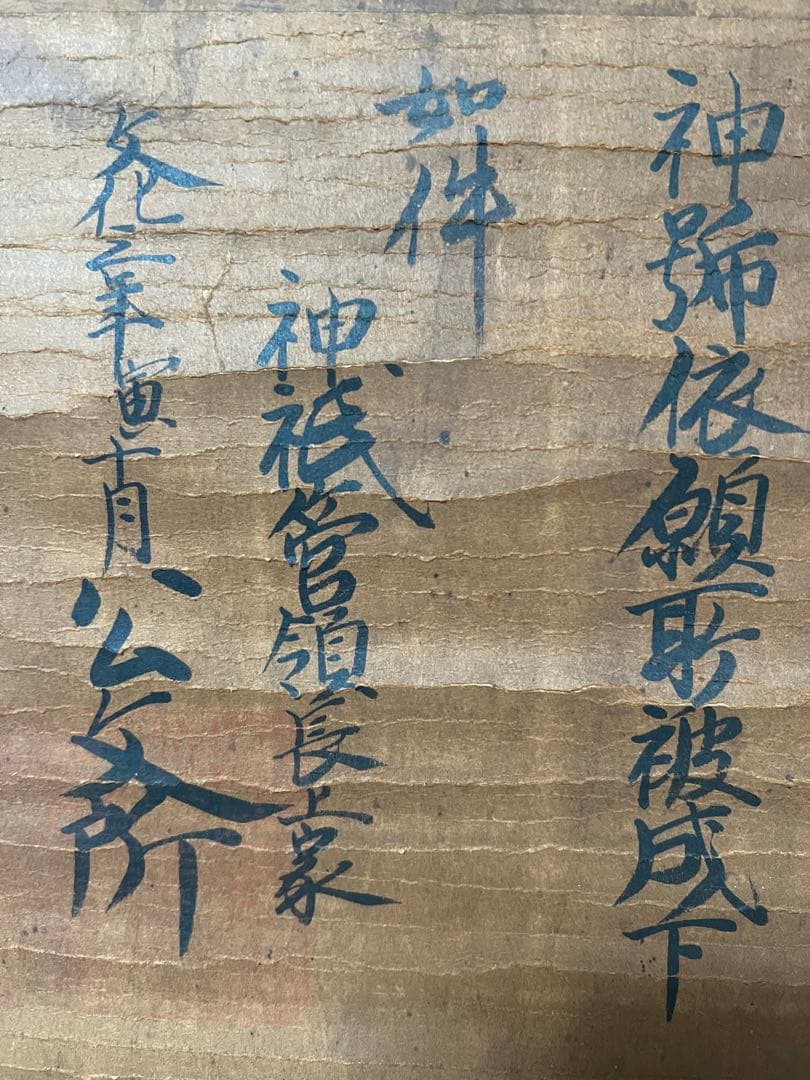 神號依願所被成下
如件
神祇管領長上家
文化三年寅十月公文所